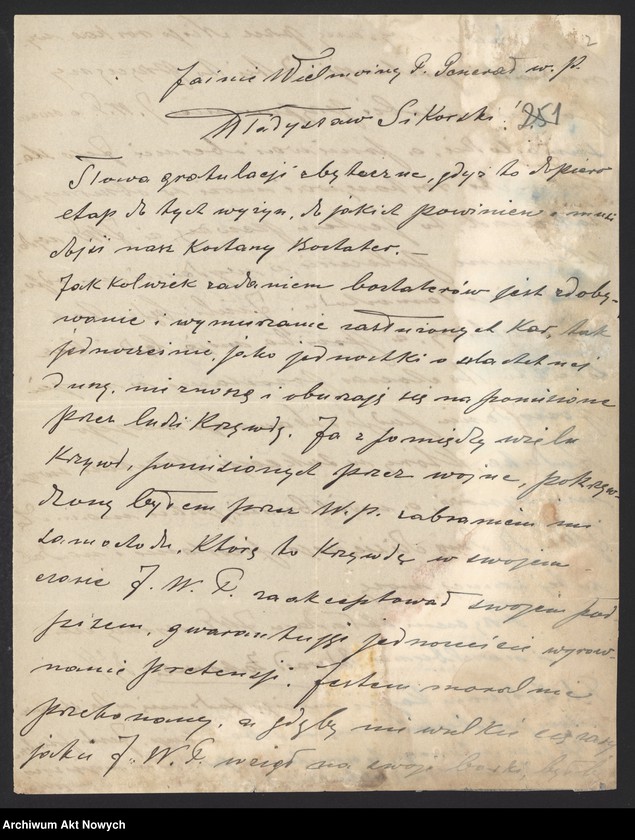 2
Jaśnie Wielmożny P. Generał w. p.
Władysław Sikorski! 251
Słowa gratulacji zbyteczne, gdyż to dopiero
etap do tych wyżyn, do jakich powinien i musi
dojść nasz kochany Bochater. —
Jakkolwiek zadaniem bochaterów jest zdoby-
wanie i wymierzanie zasłużonych kar, tak
jednocześnie, jako jednostki o szlachetnej
duszy, nie znoszą i oburzają się na ponoszone
przez ludzi krzywdy. Ja z pomiędzy wielu
krzywd, ponoszonych przez wojnę, pokrzyw-
dzony byłem przez W.P. zabraniem mi
samochodu. Którą to krzywdę w swojem
czasie J. W. P. zaakceptował swojem pod
pisem, gwarantując jednocześnie wyrów-
nanie pretensji. Jestem moralnie
przekonany, że gdyby nie wielkie ciężary
jakie J. W. P. wziął na swoje barki, było
Archiwum Akt Nowych